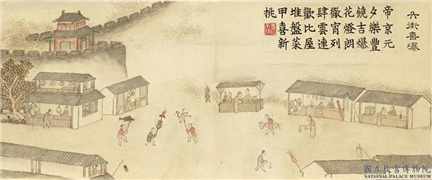 帝京元
夕樂豐
饒吉爆
花燈朗
徹宵列
肆雲連
歡比屋
堆盤菜
甲喜新
挑
國立故宮博物院
NATIONAL PALACE MUSEUM